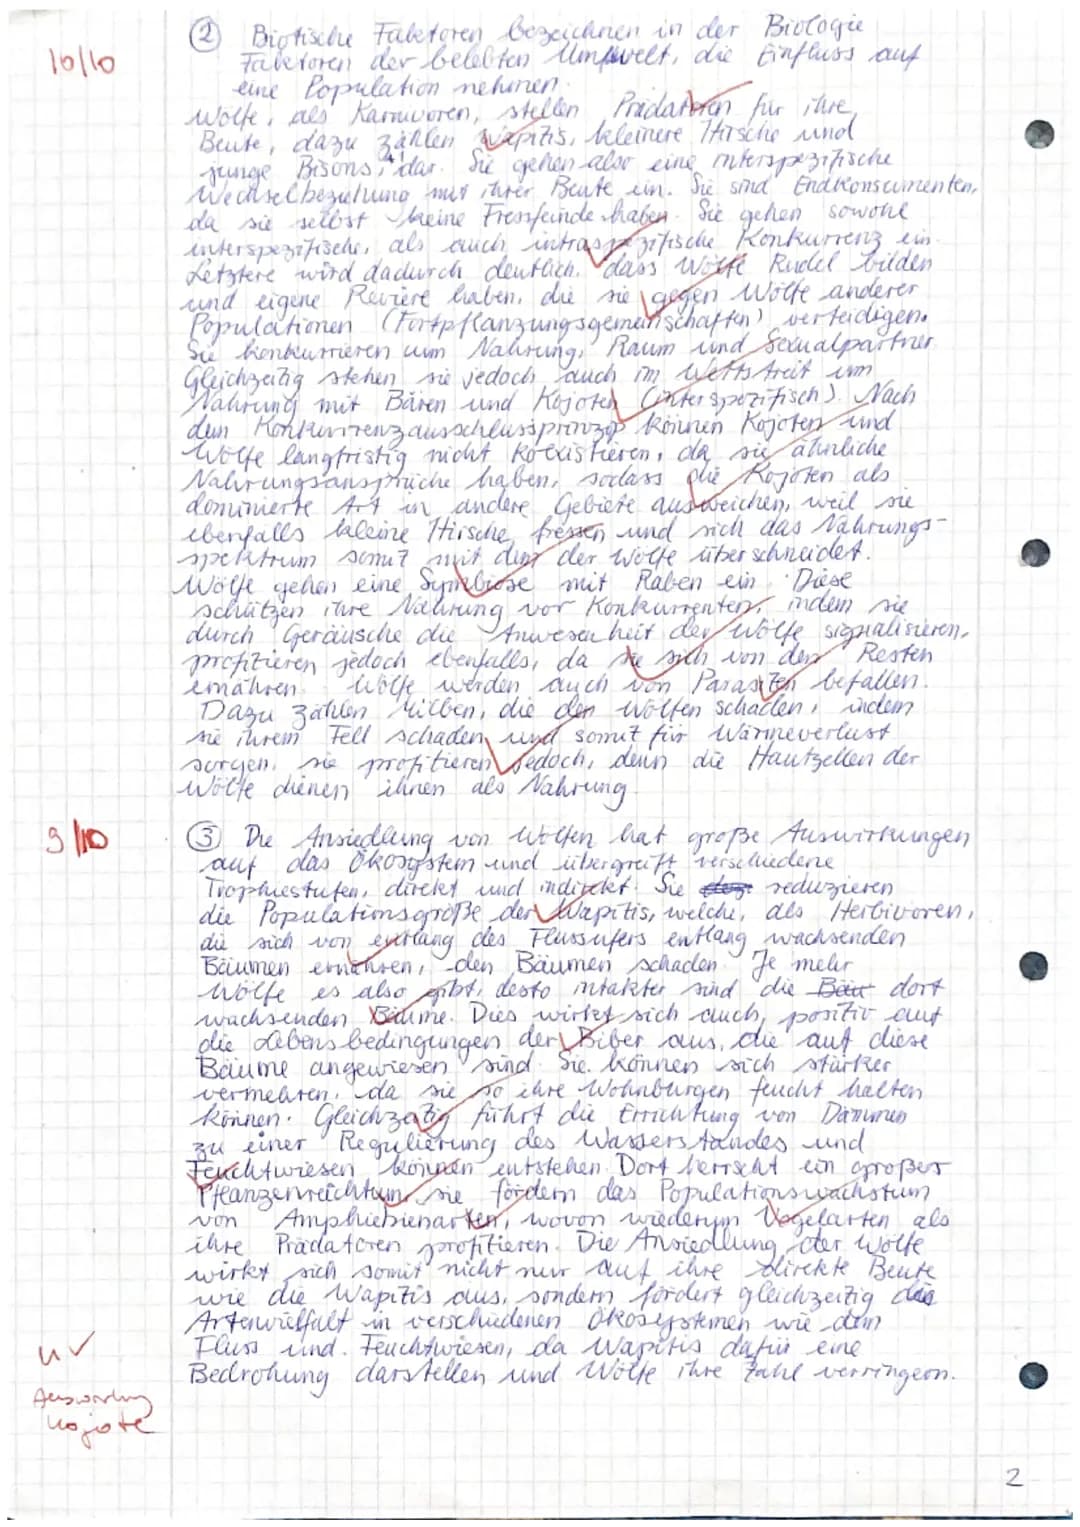 10/10
② Biotische Faktoren bezeichnen in der Biologie
Faktoren der belebten Umwelt, die Einfluss auf
eine Population nehmen.
Wölfe, als Karnivoren, stellen Prädatoren für ihre
Beute, dazu zählen Wapitis, kleinere Hirsche und
junge Bisons, dar. Sie gehen also eine interspezifische
Wechselbeziehung mit ihrer Beute ein. Sie sind Endkonsumenten,
da sie selbst keine Fressfeinde haben. Sie gehen sowohl
interspezifische, als auch intraspezifische Konkurrenz ein.
Letztere wird dadurch deutlich, dass Wölfe Rudel bilden
und eigene Reviere haben, die sie gegen Wölfe anderer
Populationen (Fortpflanzungsgemeinschaften) verteidigen.
Sie konkurrieren um Nahrung, Raum und Sexualpartner.
Gleichzeitig stehen sie jedoch auch im Wettstreit um
Nahrung mit Bären und Kojoten (interspezifisch). Nach
dem Konkurrenzausschlussprinzip können Kojoten und
Wölfe langfristig nicht koexistieren, da sie ähnliche
Nahrungsansprüche haben, sodass die Kojoten als
dominierte Art in andere Gebiete ausweichen, weil sie
ebenfalls kleine Hirsche fressen und sich das Nahrungs-
spektrum somit mit dem der Wölfe überschneidet.
Wölfe gehen eine Symbiose mit Raben ein. Diese
schützen ihre Nahrung vor Konkurrenten, indem sie
durch Geräusche die Anwesenheit der Wölfe signalisieren,
profitieren jedoch ebenfalls, da sie sich von den Resten
ernähren. Wölfe werden auch von Parasiten befallen.
Dazu zählen Milben, die den Wölfen schaden, indem
sie ihrem Fell schaden und somit für Wärmeverlust
sorgen, sie profitieren jedoch, denn die Hautzellen der
Wölfe dienen ihnen als Nahrung.
9/10
③ Die Ansiedlung von Wölfen hat große Auswirkungen
auf das Ökosystem und übergreift verschiedene
Trophiestufen, direkt und indirekt. Sie reduzieren
die Populationsgröße der Wapitis, welche, als Herbivoren,
die sich von entlang des Flussufers entlang wachsenden
Bäumen ernähren, den Bäumen schaden. Je mehr
Wölfe es also gibt, desto intakter sind die Bäu dort
wachsenden Bäume. Dies wirkt sich auch positiv auf
die Lebensbedingungen der Biber aus, die auf diese
Bäume angewiesen sind. Sie können sich stärker
vermehren, da sie so ihre Wohnburgen feucht halten
können. Gleichzeitig führt die Errichtung von Dämmen
zu einer Regulierung des Wasserstandes und
Feuchtwiesen können entstehen. Dort herrscht ein großer
Pflanzenreichtum, sie fördern das Populationswachstum
von Amphiebienarten, wovon wiederum Vogelarten als
ihre Prädatoren profitieren. Die Ansiedlung der Wölfe
wirkt sich somit nicht nur auf ihre direkte Beute
wie die Wapitis aus, sondern fördert gleichzeitig die
Artenvielfalt in verschiedenen Ökosystemen wie dem
Fluss und Feuchtwiesen, da Wapitis dafür eine
Bedrohung darstellen und Wölfe ihre Zahl verringern.
Auswirkung
Kojote
2